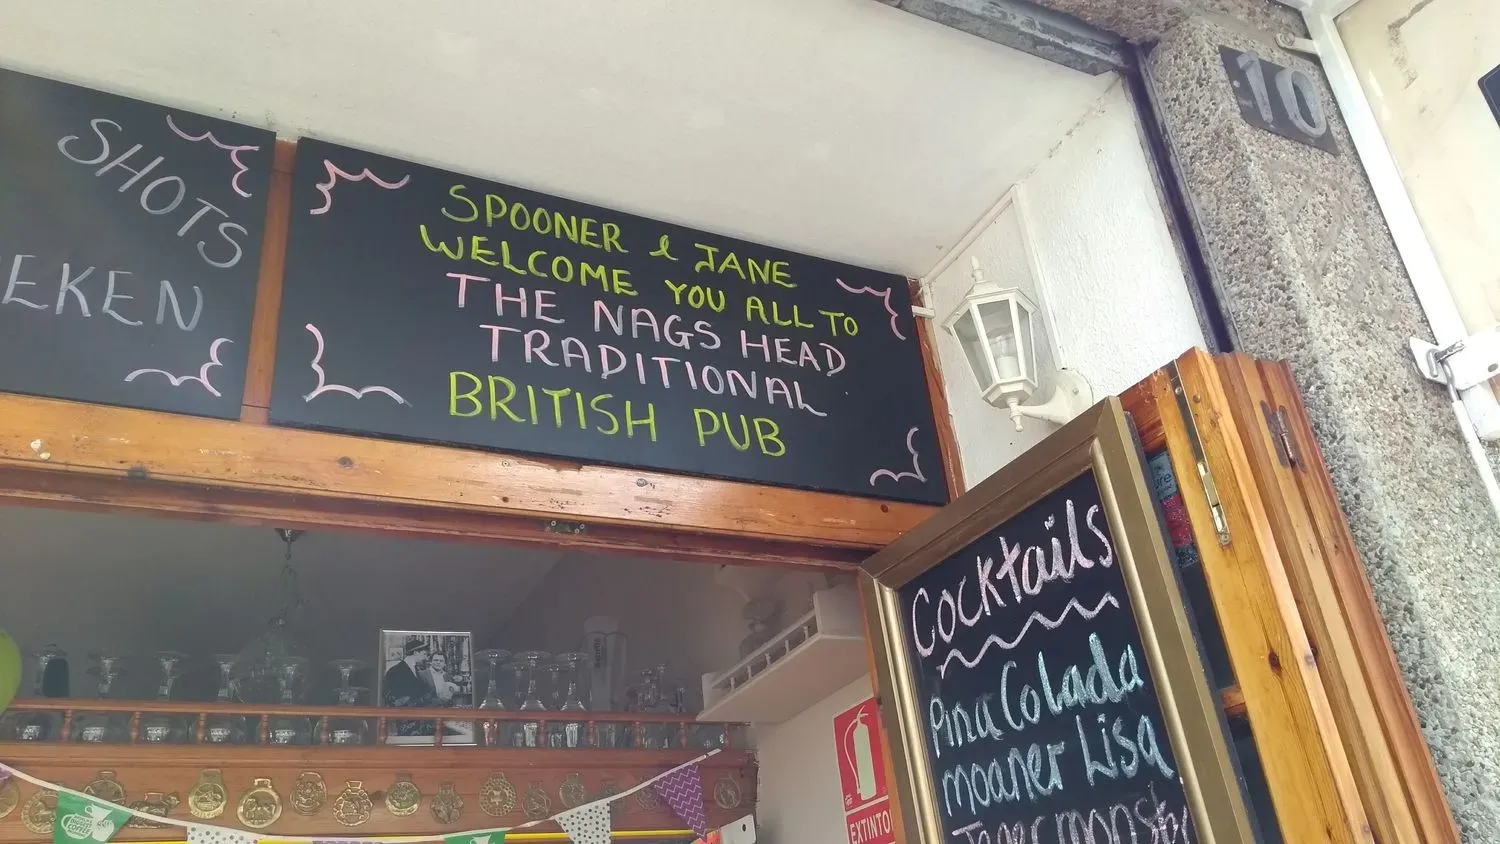 SHOTS
SPOONER & JANE
WELCOME YOU ALL TO
THE NAGS HEAD
TRADITIONAL
BRITISH PUB
10
Cocktails
Pina Colada
moaner Lisa
EXTINTO